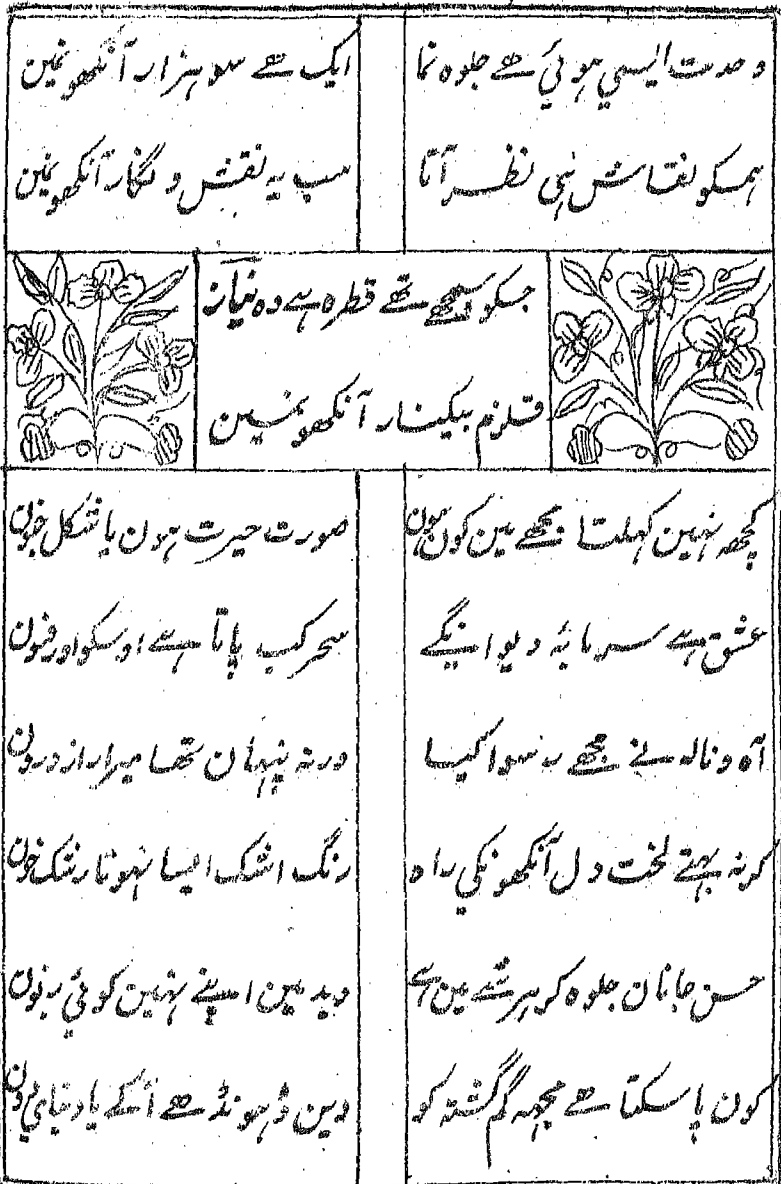 وحدت ایسي ہوئي ھے جلوہ نما
ایک ھے سو ہزار آنکھو نمین
ہمسکو نقاش نہی نظر آتا
سب یہ نقش و نگار آنکھو نمین
جسکو سمجھے تھے قطرہ ہے وہ نیاز
قلزم بیکنار آنکھو نمین
کچھہ نہین کہلتا مجھے مین کون ہون
صورت حیرت ہون یا شکل جنون
عشق ہے سرمایۂ دیوانگے
سحر کب پاتا ہے اوسکو اور فنون
آہ و نالہ نے مجھے رسوا کیا
ورنہ پنہان تھا میرا راز درون
گر نہ بہتے لخت دل آنکھونکي راہ
رنگ اشک ایسا نہوتا رشک خون
حسن جانان جلوہ گر ہر شے مین ہے
دید مین اپنے نہین کوئي
کون پا سکتا ھے مجھہ گم گشتہ کو
وین ڈہونڈھے آکے یا